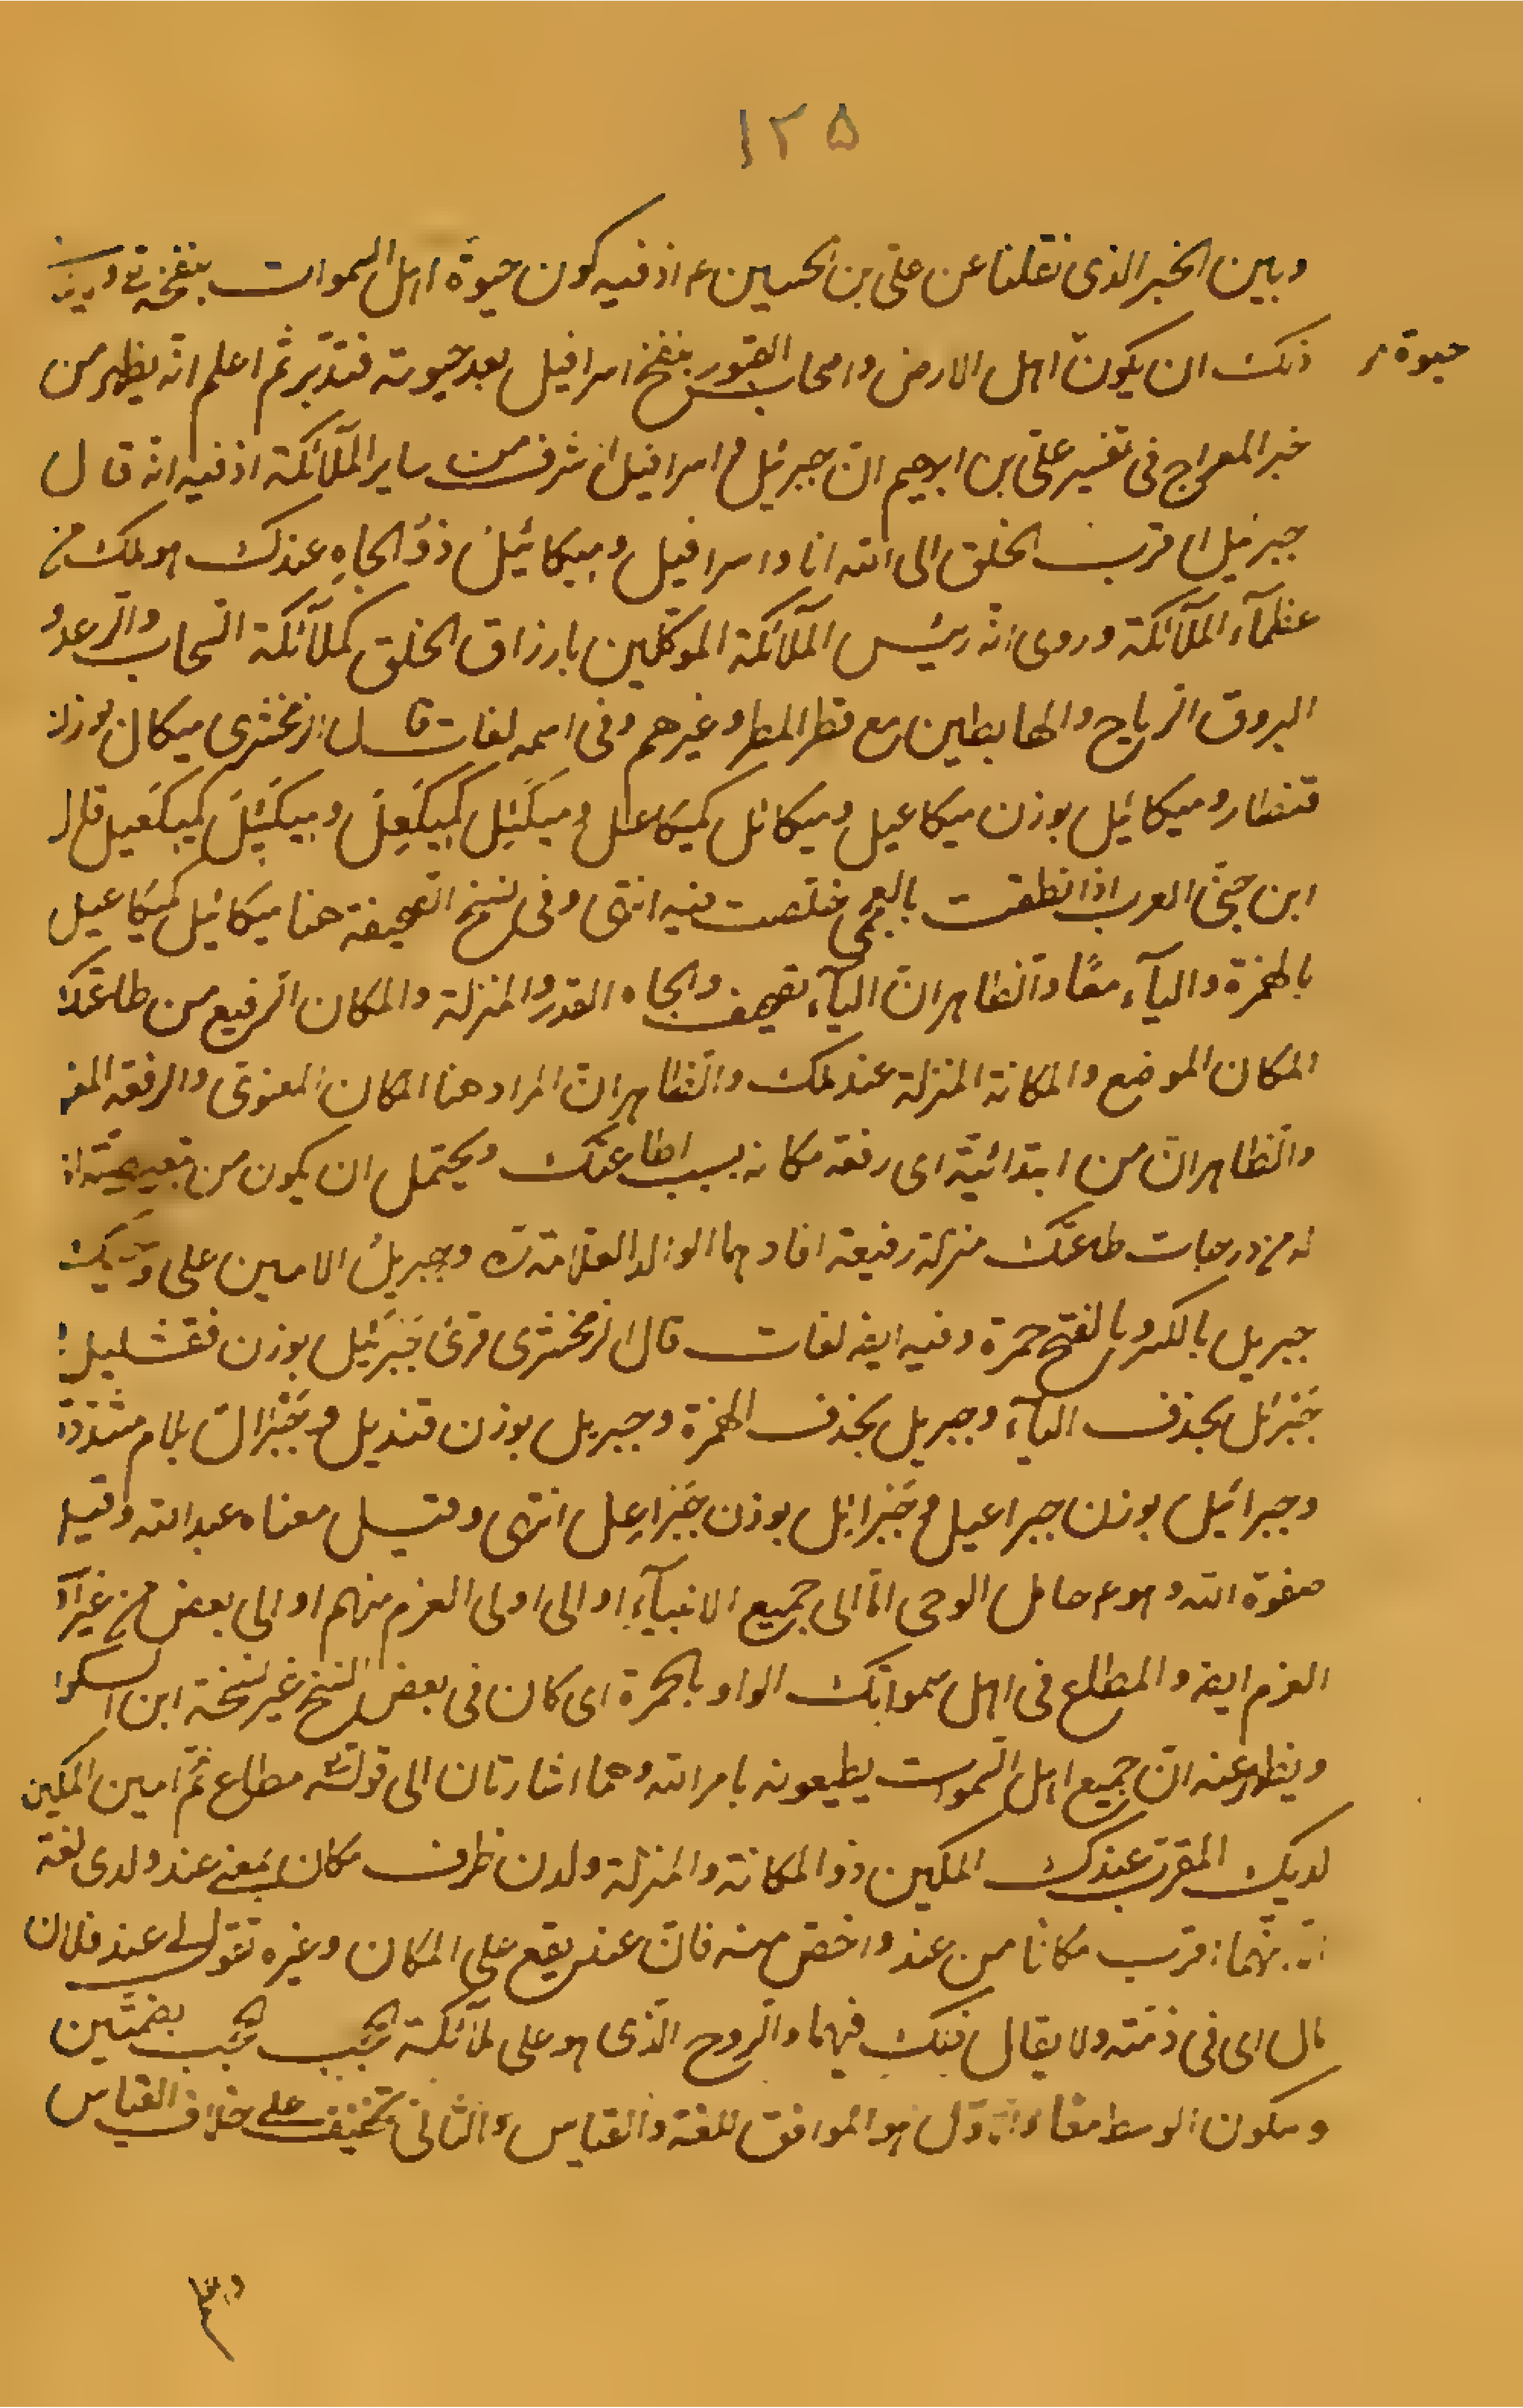 ١٢٥
وبين الخبر الذى نقلنا عن على بن الحسين ع اذ فيه كون حيوة اهل السموات بنفخة
حيوة
ذلك ان يكون اهل الارض واصحاب القبور بنفخ اسرافيل بعد حيوته فتدبر ثم اعلم انه يظهر من
خبر المعراج فى تفسير على بن ابرهيم ان جبرئيل و اسرافيل اشرف من ساير الملآئكة اذ فيه انه قال
جبرئيل اقرب الخلق الى الله انا واسرافيل وميكائيل ذو الجاه عندك هو ملك من
عظمآء الملآئكة وروى انه رئيس الملآئكة الموكلين بارزاق الخلق كملآئكة السحاب والرعد و
البروق الرياح والهابطين مع قطر المطر وغيرهم وفى اسمه لغات قال الزمخشرى ميكال بوزن
قنطار وميكائيل بوزن ميكاعيل وميكائل كميكاعل وميكئل كميكعل وميكئيل كميكعيل قال
ابن جنى العرب اذا نطقت بالعجمى خلصت فيه انتهى وفى نسخ الصحيفة هنا ميكائيل كميكاعيل
بالهمزة واليآء معا والظاهر ان اليآء تصحيف والجاه القدر والمنزلة والمكان الرفيع من طاعتك
المكان الموضع والمكانة المنزلة عند ملك والظاهر ان المراد هنا المكان المعنوى والرفعة
والظاهر ان من ابتدائية اى رفعة مكانه بسبب اطاعتك ويحتمل ان يكون من تبعيضية
له من درجات طاعتك منزلة رفيعة افادهما الوالد العلامة ره وجبريل الامين على وحيك
جبريل بالكسر وبالفتح حمرة وفيه ايضه لغات قال الزمخشرى قرئ جبرئيل بوزن قفشليل
جبرئل بحذف اليآء وجبريل بحذف الهمزة وجبريل بوزن قنديل و جبرال بلام مشددة
وجبرائيل بوزن جبراعيل و جبرائل بوزن جبراعل انتهى وقيل معناه عبد الله وقيل
صفوة الله وهو ع حامل الوحى اما الى جميع الانبيآء او الى اولى العزم منهم او الى بعض من غير
العزم ايضه والمطاع فى اهل سمواتك الواو بالحمرة اى كان فى بعض النسخ غير نسخة ابن السكون
ويظهر عنه ان جميع اهل السموات يطيعونه بامر الله وهما اشارتان الى قوله تعه مطاع ثم امين المكين
لديك المقرب عندك المكين ذو المكانة والمنزلة ولدن ظرف مكان بمعنى عند ولدى لغة
اقرب مكانا من عند واخص منه فان عند يقع على المكان وغيره تقول لى عند فلان
مال اى فى ذمته ولا يقال ذلك فيهما والروح الذى هو على ملآئكة الحجب الحجب بضمتين
وسكون الوسط معا والاول هو الموافق للغة والقياس والثانى تخفيف على خلاف القياس